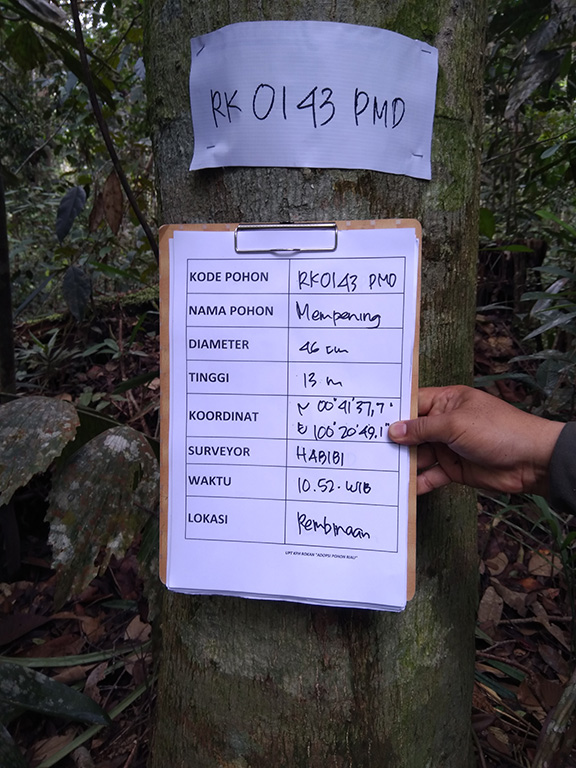 RK 0143 PMD
KODE POHON RK0143 PMD
NAMA POHON Mempening
DIAMETER 46 cm
TINGGI 13 m
KOORDINAT N 00°41'37,7"
E 100°20'49.1"
SURVEYOR HABIBI
WAKTU 10.52. WIB
LOKASI Rembinaan
UPT KPH ROKAN "ADOPSI POHON RIAU"